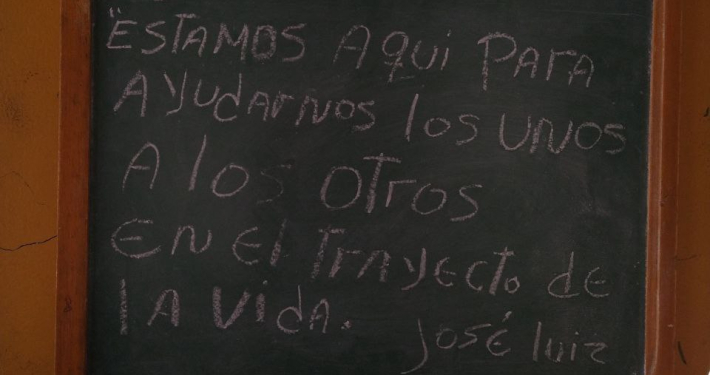 "ESTAMOS AQUi PArA
AyUdArNos los UNOS
A los OTrOS
EN El TrAyEcTo dE
lA Vida.
José luiz